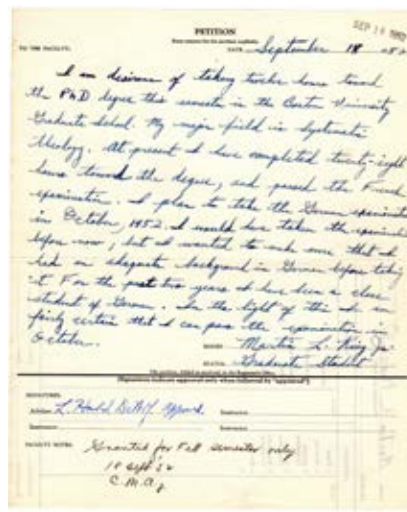 PETITION
TO THE FACULTY:
DATE September 18
SEP 18
I am desirous of taking twelve hours toward
the PhD degree this semester in the Boston University
Graduate School. My major field is systematic
theology. At present I have completed twenty-eight
hours toward the degree, and passed the French
examination. I plan to take the German examination
in October, 1952. I would have taken the examination
before now, but I wanted to make sure that I
had an adequate background in German before taking
it. For the past two years I have been a close
student of German. In the light of this I am
fairly certain that I can pass the examination in
October.
SIGNED Martin L. King Jr.
STATUS Graduate Student
(Signatures indicate approval only when followed by "approved")
SIGNATURES:
Adviser L. Harold DeWolf, approved. Instructor
Instructor Instructor
FACULTY NOTES: Granted for Fall semester only
18 Sept 52